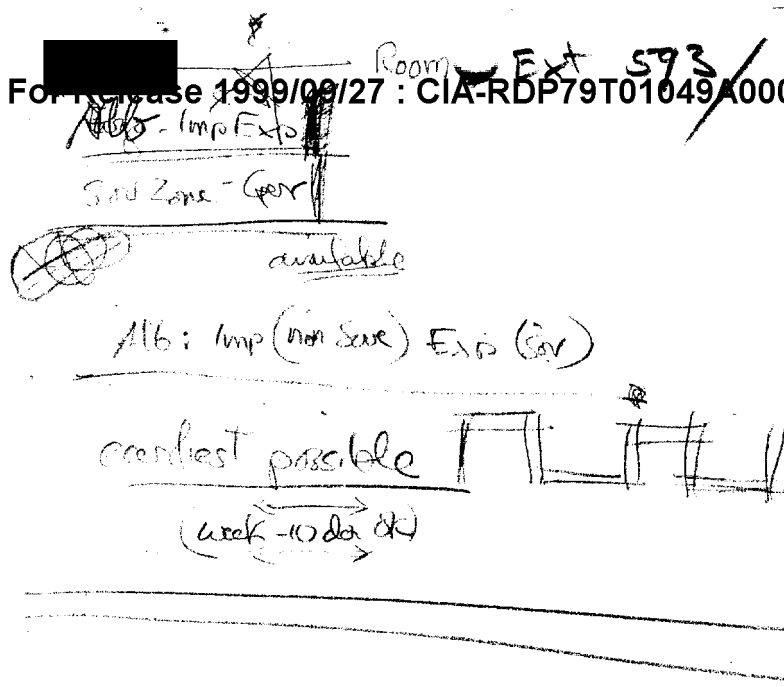 Room Ext 593
For Release 1999/09/27 : CIA-RDP79T01049A000
Alb - Imp Exp
Sov Zone - Ger
available
Alb: Imp (non Sov) Exp (Sov)
earliest possible
(week - 10 da OK)